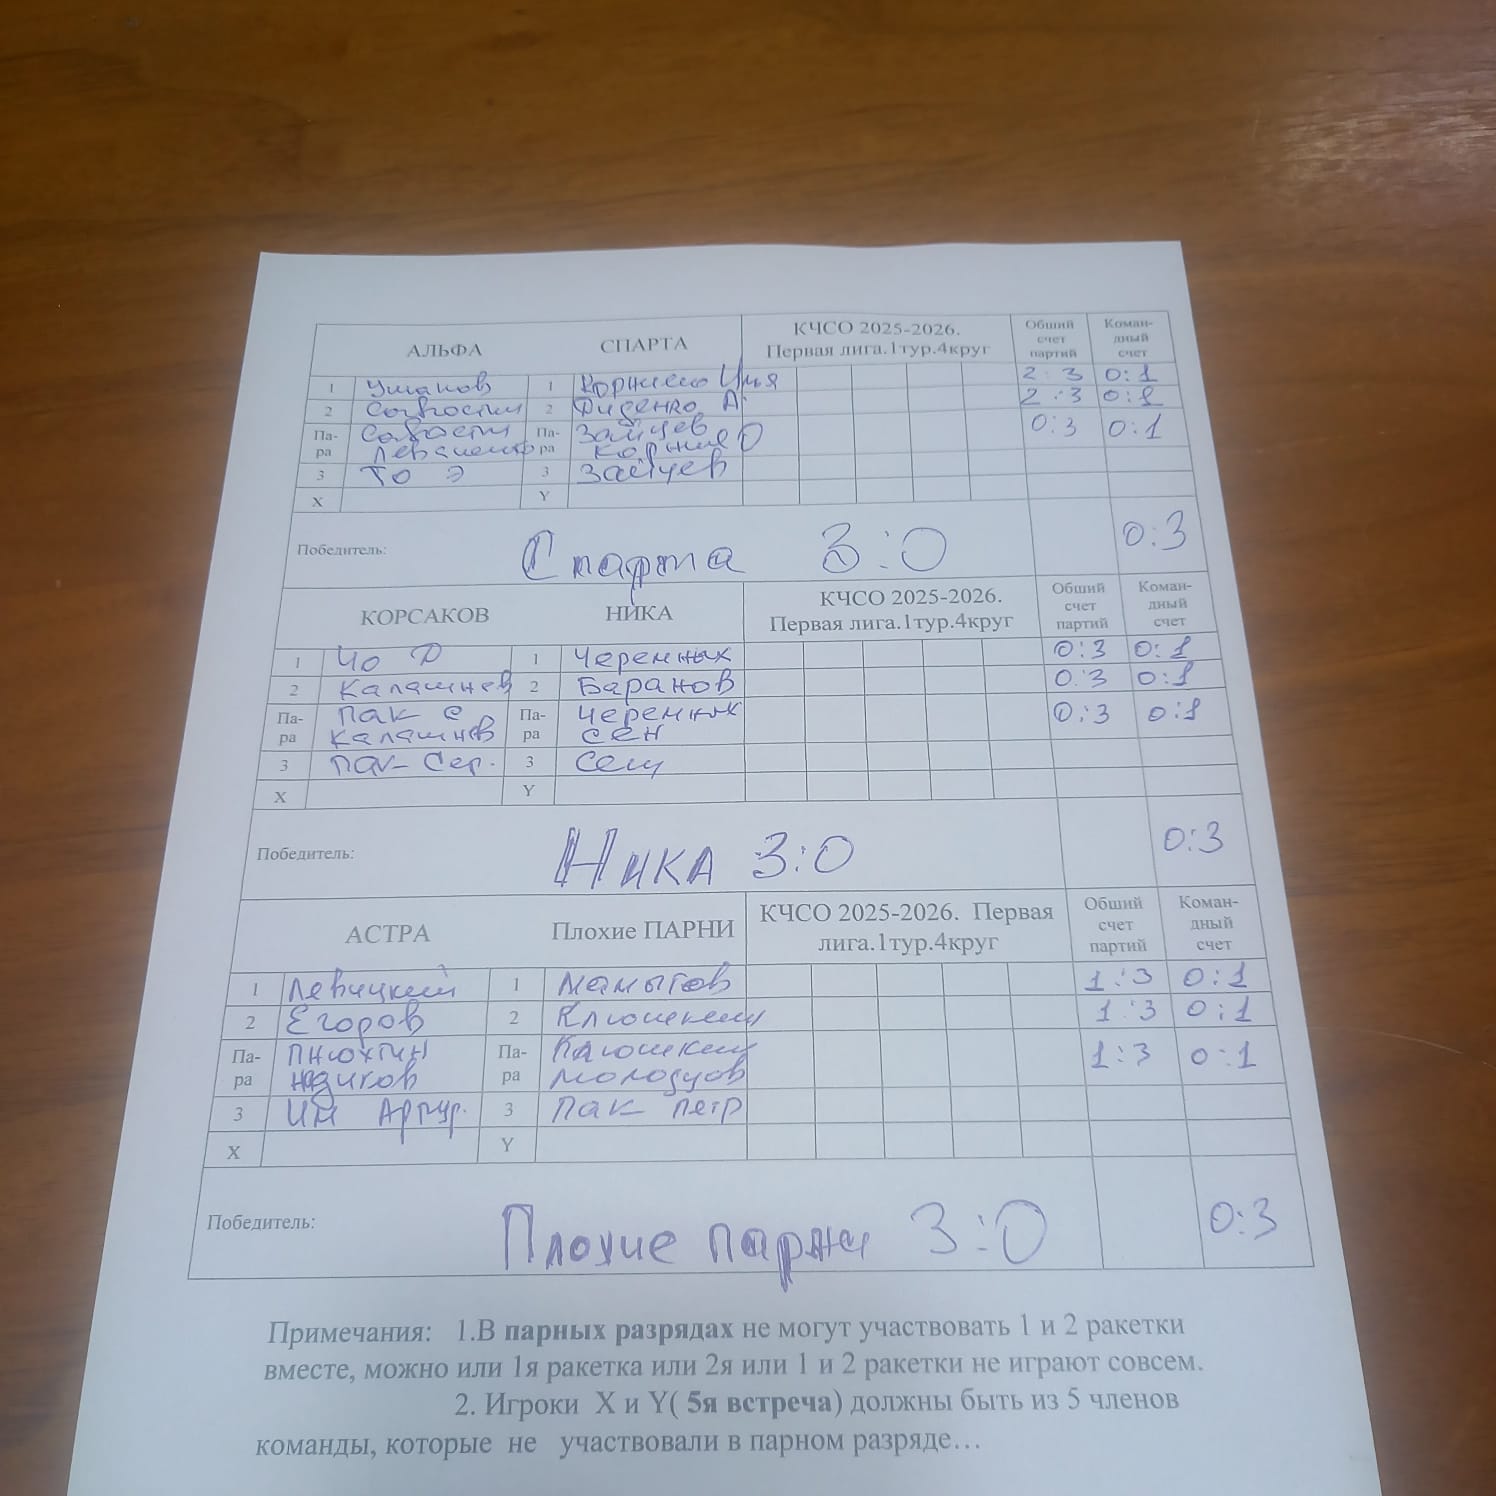 АЛЬФА СПАРТА КЧСО 2025-2026. Первая лига.1тур.4круг Общий счет партий Коман-дный счет
1 Ушаков 1 Корниенко 2:3 0:1
2 2 Диденко А. 2:3 0:1
Па-ра Па-ра Зайцев 0:3 0:1
3 То Э 3 Зайцев
X Y
Победитель: Спарта 3:0 0:3
КОРСАКОВ НИКА КЧСО 2025-2026. Первая лига.1тур.4круг Общий счет партий Коман-дный счет
1 Чо Д 1 Черемных 0:3 0:1
2 Калашнев 2 Баранов 0:3 0:1
Па-ра Пак С Калашнев Па-ра Черемных Сен 0:3 0:1
3 Пак Сер. 3 Сен
X Y
Победитель: Ника 3:0 0:3
АСТРА Плохие ПАРНИ КЧСО 2025-2026. Первая лига.1тур.4круг Общий счет партий Коман-дный счет
1 Левицкий 1 Мамытов 1:3 0:1
2 Егоров 2 Клюшкин 1:3 0:1
Па-ра Пнюхтин Па-ра Клюшкин Молодцов 1:3 0:1
3 Им Артур. 3 Пак Петр
X Y
Победитель: Плохие парни 3:0 0:3
Примечания: 1.В парных разрядах не могут участвовать 1 и 2 ракетки
вместе, можно или 1я ракетка или 2я или 1 и 2 ракетки не играют совсем.
2. Игроки X и Y( 5я встреча) должны быть из 5 членов
команды, которые не участвовали в парном разряде…